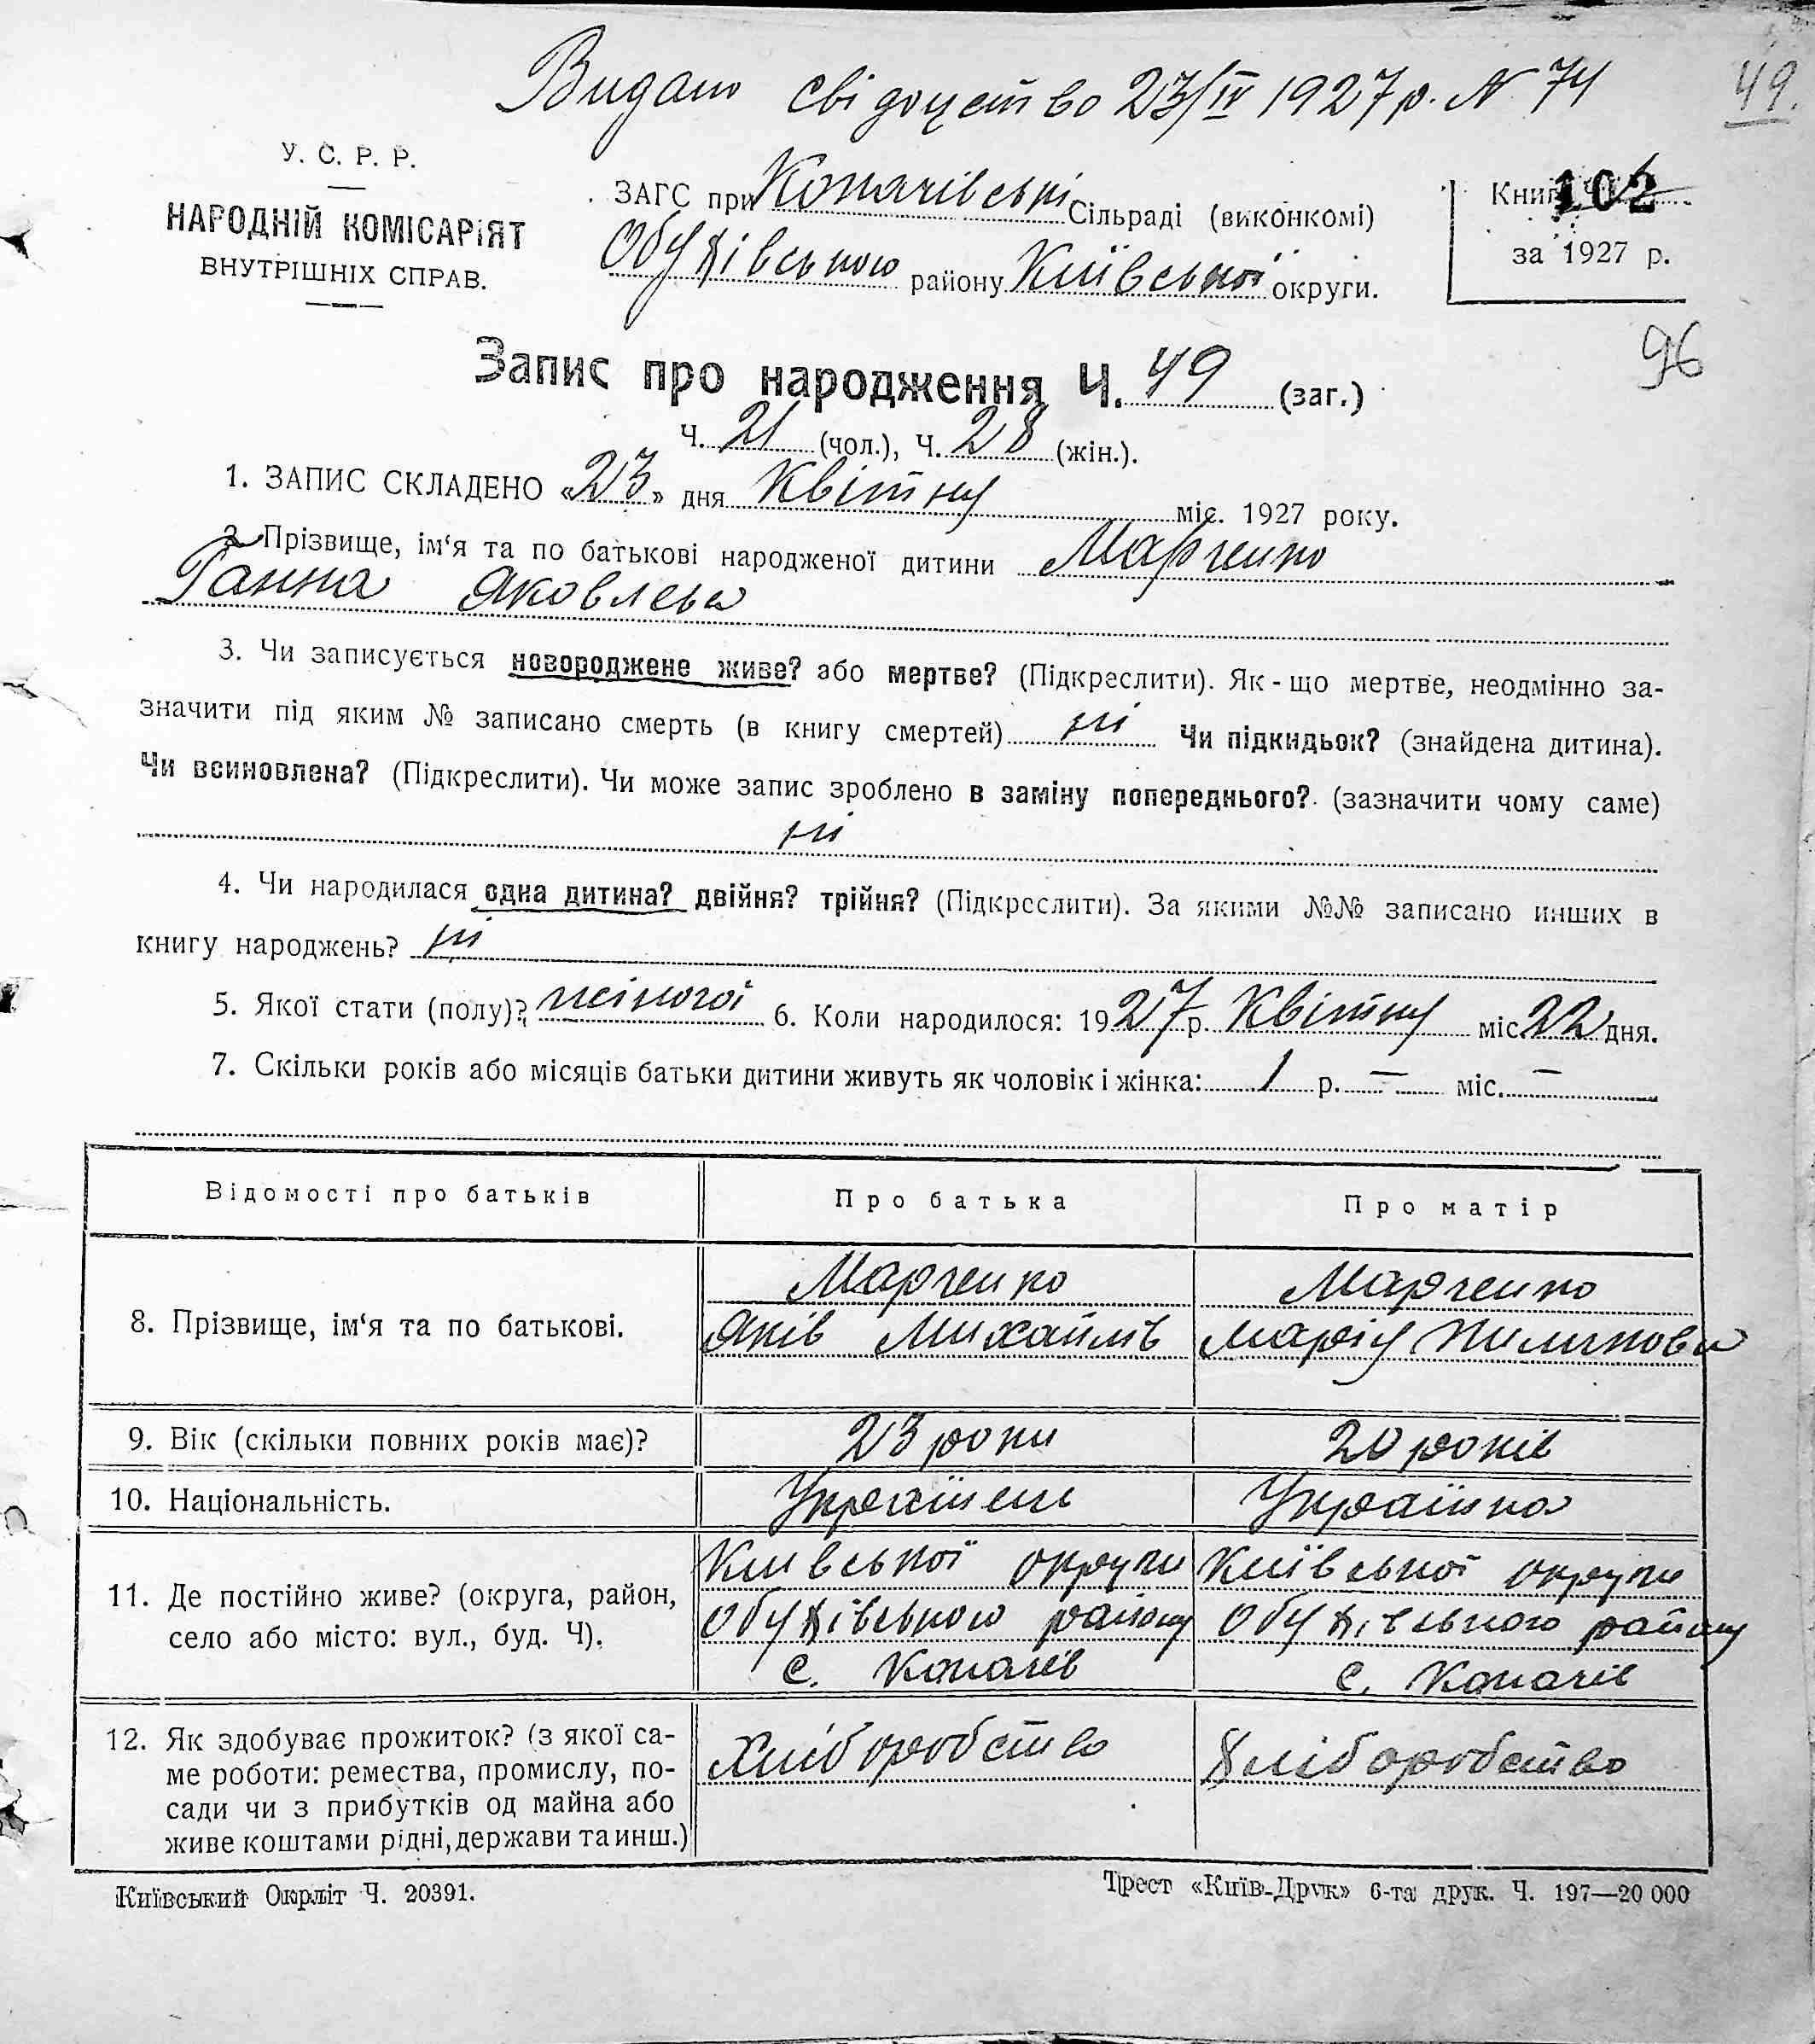 Видано свідоцтво 23/IV 1927 р. N 74
49.
У. С. Р. Р.
НАРОДНІЙ КОМІСАРІЯТ
ВНУТРІШНІХ СПРАВ.
ЗАГС при Копачівські Сільраді (виконкомі)
Обухівського району Київської округи.
102
за 1927 р.
96
Запис про народження Ч. 49 (заг.)
Ч. 21 (чол.), Ч. 28 (жін.).
1. ЗАПИС СКЛАДЕНО «23» дня Квітня міс. 1927 року.
2. Прізвище, ім‘я та по батькові народженої дитини Марченко
Ганна Яковлева
3. Чи записується новороджене живе? або мертве? (Підкреслити). Як-що мертве, неодмінно за-
значити під яким № записано смерть (в книгу смертей) ні Чи підкидьок? (знайдена дитина).
Чи всиновлена? (Підкреслити). Чи може запис зроблено в заміну попереднього? (зазначити чому саме)
ні
4. Чи народилася одна дитина? двійня? трійня? (Підкреслити). За якими №№ записано инших в
книгу народжень? ні
5. Якої стати (полу)? жіночої 6. Коли народилося: 1927 р. Квітня міс. 22 дня.
7. Скільки років або місяців батьки дитини живуть як чоловік і жінка: 1 р. — міс. —
Відомості про батьків Про батька Про матір
8. Прізвище, ім‘я та по батькові.
Марченко Марченко
Яків Михайлів Марія Пилипова
9. Вік (скільки повних років має)? 23 роки 20 років
10. Національність. Українець Українка
11. Де постійно живе? (округа, район,
село або місто: вул., буд. Ч).
Київської округи Київської округи
Обухівського району Обухівського району
с. Копачів с. Копачів
12. Як здобуває прожиток? (з якої са-
ме роботи: ремества, промислу, по-
сади чи з прибутків од майна або
живе коштами рідні, держави та инш.)
Хліборобство Хліборобство
Київський Окрліт Ч. 20391.
Трест «Київ-Друк» 6-та друк. Ч. 197—20 000